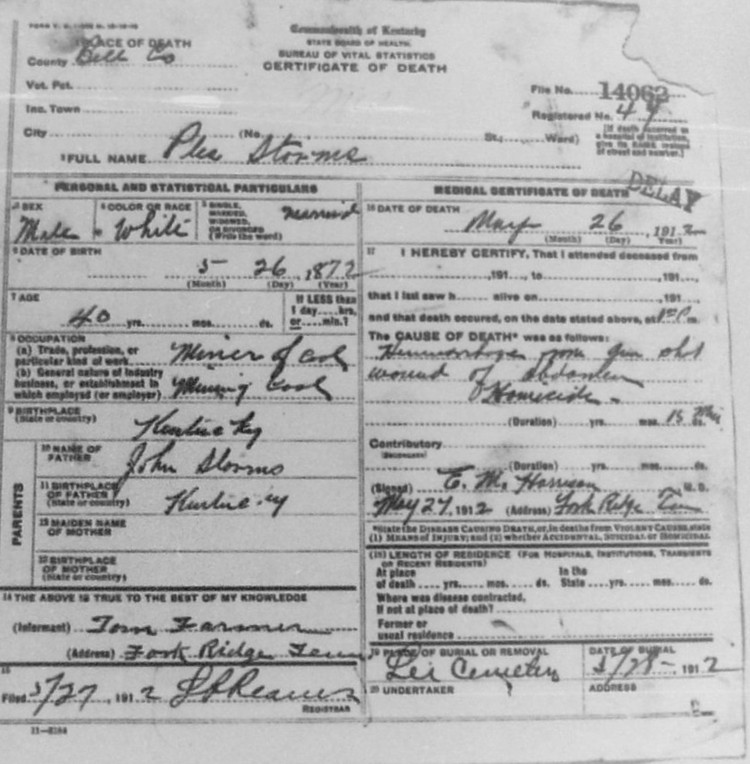 Commonwealth of Kentucky
STATE BOARD OF HEALTH
BUREAU OF VITAL STATISTICS
CERTIFICATE OF DEATH
PLACE OF DEATH
County Bell Co
Vot. Pct.
Inc. Town
City (No. St.; Ward)
File No. 14062
Registered No. 44
[If death occurred in a hospital or institution, give its NAME instead of street and number.]
FULL NAME Ples Storms
PERSONAL AND STATISTICAL PARTICULARS
SEX Male
COLOR OR RACE White
SINGLE, MARRIED, WIDOWED OR DIVORCED (Write the word) Married
DATE OF BIRTH
5 26, 1872
(Month) (Day) (Year)
AGE
40 yrs. mos. ds.
If LESS than 1 day hrs. or min.?
OCCUPATION
(a) Trade, profession, or particular kind of work Miner of coal
(b) General nature of industry business, or establishment in which employed (or employer) Mining Coal
BIRTHPLACE
(State or country) Kentucky
PARENTS
10 NAME OF FATHER John Storms
11 BIRTHPLACE OF FATHER (State or country) Kentucky
12 MAIDEN NAME OF MOTHER
13 BIRTHPLACE OF MOTHER (State or country)
14 THE ABOVE IS TRUE TO THE BEST OF MY KNOWLEDGE
(Informant) Tom Farmer
(Address) Fork Ridge Tenn
15
Filed 5/27, 1912
REGISTRAR
11-3184
MEDICAL CERTIFICATE OF DEATH
DELAY
16 DATE OF DEATH
May 26 1912
(Month) (Day) (Year)
17 I HEREBY CERTIFY, That I attended deceased from
, 191 , to , 191 ,
that I last saw h alive on , 191 ,
and that death occurred, on the date stated above, at m.
The CAUSE OF DEATH* was as follows:
Hemmorhage from gun shot
wound of abdomen
Homicide -
(Duration) yrs. mos. 15 ds.
Contributory
(SECONDARY)
(Duration) yrs. mos. ds.
(Signed) E. M. Harrison M. D.
May 27, 1912 (Address) Fork Ridge Tenn
*State the DISEASE CAUSING DEATH, or, in deaths from VIOLENT CAUSES, state
(1) MEANS OF INJURY; and (2) whether ACCIDENTAL, SUICIDAL OR HOMICIDAL
18 LENGTH OF RESIDENCE (FOR HOSPITALS, INSTITUTIONS, TRANSIENTS
OR RECENT RESIDENTS)
At place of death yrs. mos. ds. In the State yrs. mos. ds.
Where was disease contracted,
If not at place of death?
Former or
usual residence
19 PLACE OF BURIAL OR REMOVAL
Cemetery
DATE OF BURIAL
5/28- 1912
20 UNDERTAKER
ADDRESS